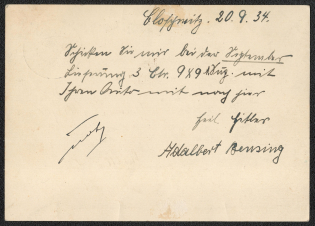 Closchwitz, 20.9.34.
Schicken Sie mir bei der September
Lieferung 3 Ctr. 9 x 9 mit
Ihrem Auto mit nach hier
Heil Hitler
Adalbert Bensing